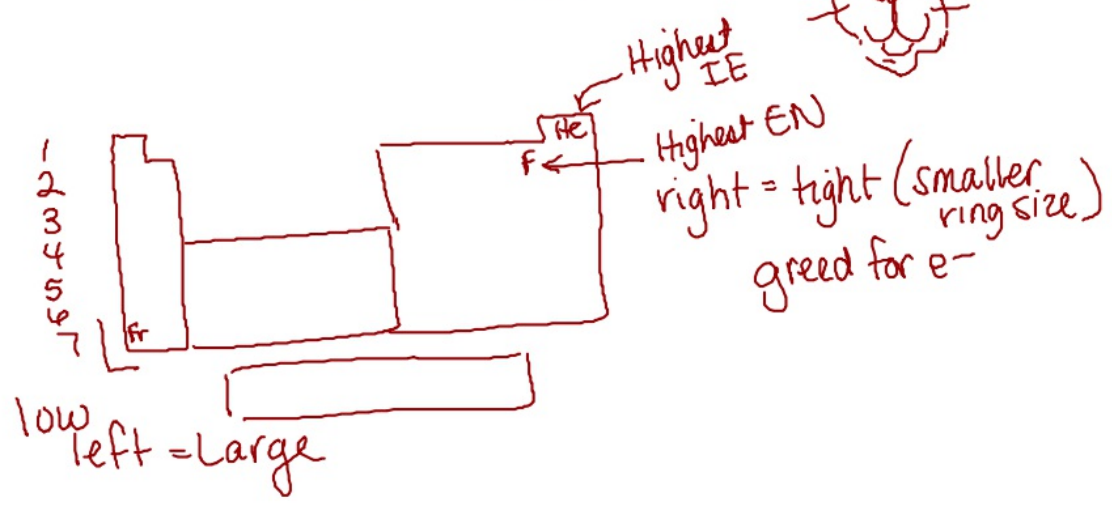 Highest
IE
He
Highest EN
F
right = tight (smaller
ring size)
greed for e-
1
2
3
4
5
6
7
Fr
low
left = Large